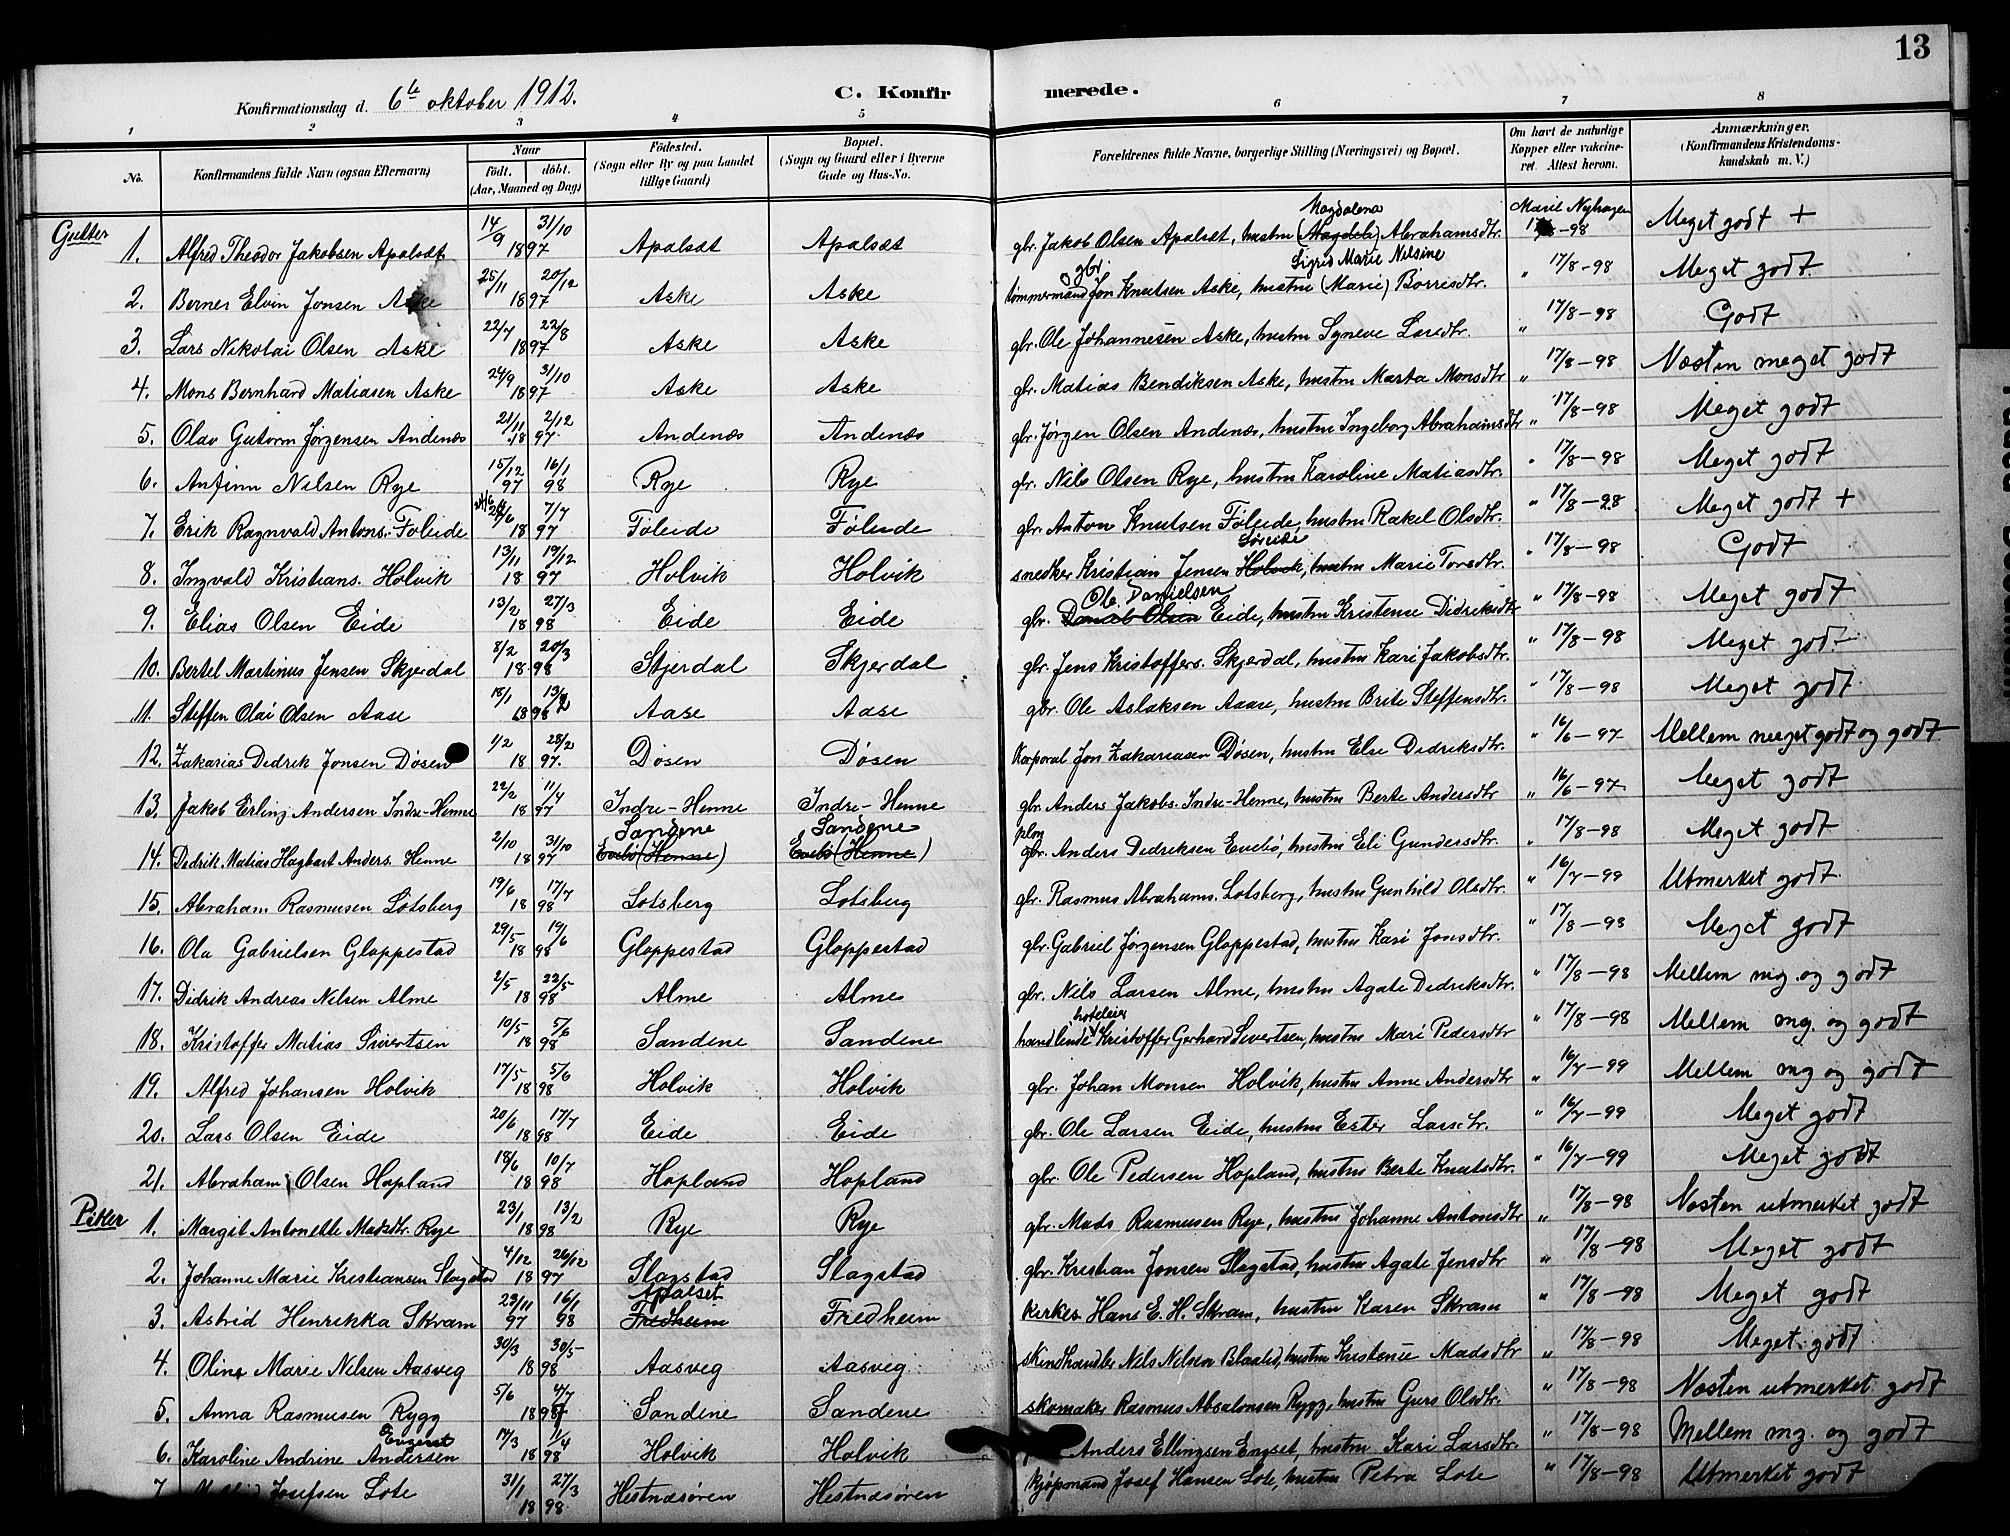 13
Konfirmationsdag d. 6te oktober 1912. C. Konfirmerede.
1 2 3 4 5 6 7 8
No. Konfirmandens fulde Navn (ogsaa Efternavn) Naar født. døbt. (Aar, Maaned og Dag) Fødested. (Sogn eller By og paa Landet tillige Gaard) Bopæl. (Sogn og Gaard eller i Byerne Gade og Hus-No. Forældrenes fulde Navne, borgerlige Stilling (Næringsvei) og Bopæl. Om havt de naturlige Kopper eller vakcineret. Attest herom. Anmærkninger. (Konfirmandens Kristendomskundskab m. V.)
Gutter
1. Alfred Theodor Jakobsen Apalsæt 14/9 31/10 1897 Apalsæt Apalsæt gbr. Jakob Olsen Apalsæt, hustru Magdalena (Magdeli) Abrahamsdtr. Marie Nyhagen 17/8-98 Meget godt +
2. Berner Elvin Jonsen Aske 25/11 20/12 1897 Aske Aske tømmermand og gbr. Jon Knutsen Aske, hustru Sigrid Marie Nilsine (Marie) Børresdtr. " 17/8-98 Meget godt
3. Lars Nikolai Olsen Aske 22/7 22/8 1897 Aske Aske gbr. Ole Johannesen Aske, hustru Synneve Larsdtr. " 17/8-98 Godt
4. Mons Bernhard Matiasen Aske 24/9 31/10 1897 Aske Aske gbr. Matias Bendiksen Aske, hustru Marta Monsdtr " 17/8-98 Næsten meget godt
5. Olav Gutorm Jørgensen Andenæs 21/11 2/12 1897 Andenæs Andenæs gbr. Jørgen Olsen Andenæs, hustru Ingeborg Abrahamsdtr " 17/8-98 Meget godt
6. Anfinn Nilsen Rye 15/12 97 16/1 98 Rye Rye gbr. Nils Olsen Rye, hustru Karoline Matiasdtr. " 17/8-98 Meget godt
7. Erik Ragnvald Antons. Føleide 7/7 1897 Føleide Føleide gbr. Anton Knutsen Føleide, hustru Rakel Olsdtr. " 17/8-98 Meget godt +
8. Ingvald Kristians. Holvik 13/11 19/12 1897 Holvik Holvik snedker Kristian Jensen Holvik, hustru Marie Toresdtr. " 17/8-98 Godt
9. Elias Olsen Eide 13/2 27/3 1898 Eide Eide gbr. Ole Danielsen Daniel Olsen Eide, hustru Kristense Didriksdtr " 17/8-98 Meget godt
10. Bertel Martinus Jensen Skjerdal 8/2 20/3 1898 Skjerdal Skjerdal gbr. Jens Kristoffers. Skjerdal, hustru Kari Jakobsdtr. " 17/8-98 Meget godt
11. Steffen Olai Olsen Aase 18/1 13/2 1898 Aase Aase gbr. Ole Aslaksen Aase, hustru Brite Steffensdtr. " 17/8-98 Meget godt
12. Zakarias Didrik Jonsen Døsen 1/2 28/2 1897. Døsen Døsen Korporal Jon Zakariasen Døsen, hustru Else Didriksdtr. " 16/6-97 Mellem meget godt og godt
13. Jakob Erling Andersen Indre-Henne 22/2 11/4 1897 Indre-Henne Indre-Henne gbr. Anders Jakobs. Indre-Henne, hustru Berte Andersdtr " 16/6-97 Meget godt
14. Didrik Matias Hagbart Anders. Henne 2/10 31/10 1897 Sandene Evebø (Henne) Sandene Evebø (Henne) gbr. Anders Didriksen Evebø, hustru Eli Gundersdtr. " 17/8-98 Meget godt
15. Abraham Rasmusen Lotsberg 19/6 17/7 1898 Lotsberg Lotsberg gbr. Rasmus Abrahams. Lotsberg, hustru Gunhild Olsdtr. " 16/7-99 Utmerket godt.
16. Ola Gabrielsen Gloppestad 29/5 19/6 1898 Gloppestad Gloppestad gbr. Gabriel Jørgensen Gloppestad, hustru Kari Jonsdtr. " 17/8-98 Meget godt
17. Didrik Andreas Nilsen Alme 2/5 22/5 1898 Alme Alme gbr. Nils Larsen Alme, hustru Agate Didriksdtr. " 17/8-98 Mellem mg. og godt
18. Kristoffer Matias Sivertsen 10/5 5/6 1898 Sandene Sandene handlende hoteleier Kristoffer Gerhard Sivertsen, hustru Mari Pedersdtr " 17/8-98 Mellem mg. og godt
19. Alfred Johansen Holvik 17/5 5/6 1898 Holvik Holvik gbr. Johan Monsen Holvik, hustru Anne Andersdtr " 16/7-99 Mellem mg og godt
20. Lars Olsen Eide 20/6 17/7 1898 Eide Eide gbr. Ole Larsen Eide, hustru Ester Larsdtr. " 16/7-99 Meget godt
21. Abraham Olsen Hopland 18/6 10/7 1898 Hopland Hopland gbr. Ole Pedersen Hopland, hustru Berte Knutsdtr. " 16/7-99 Meget godt
Piker
1. Margit Antonette Madsdtr. Rye 23/1 13/2 1898 Rye Rye gbr. Mads Rasmusen Rye, hustru Johanne Antonsdtr " 17/8-98 Næsten utmerket godt
2. Johanne Marie Kristiansen Slagstad 4/12 26/12 1897 Slagstad Slagstad gbr. Kristian Jonsen Slagstad, hustru Agate Jensdtr " 17/8-98 Meget godt
3. Astrid Henrikka Skram 23/11 97 16/1 98 Apalset Fredheim Fredheim kirkes. Hans E. H. Skram, hustru Karen Skram " 17/8-98 Meget godt
4. Oline Marie Nilsen Aasveg 30/3 30/5 1898 Aasveg Aasveg skindhandler Nils Nilsen Blaalid, hustru Kristense Madsdtr " 17/8-98 Meget godt
5. Anna Rasmusen Rygg 5/6 4/7 1897 Sandene Sandene skomaker Rasmus Absalonsen Rygg, hustru Guro Olsdtr. " 17/8-98 Næsten utmerket godt
6. Karoline Andrine Andersen Engeset 17/3 11/4 1898 Holvik Holvik Anders Ellingsen Engset, hustru Kari Larsdtr. " 17/8-98 Mellem mg. og godt
7. Josefsen Lote 31/1 27/3 1898 Hestnesøren Hestnesøren kjøpmand Josef Hansen Lote, hustru Petra Lote " 17/8-98 Utmerket godt